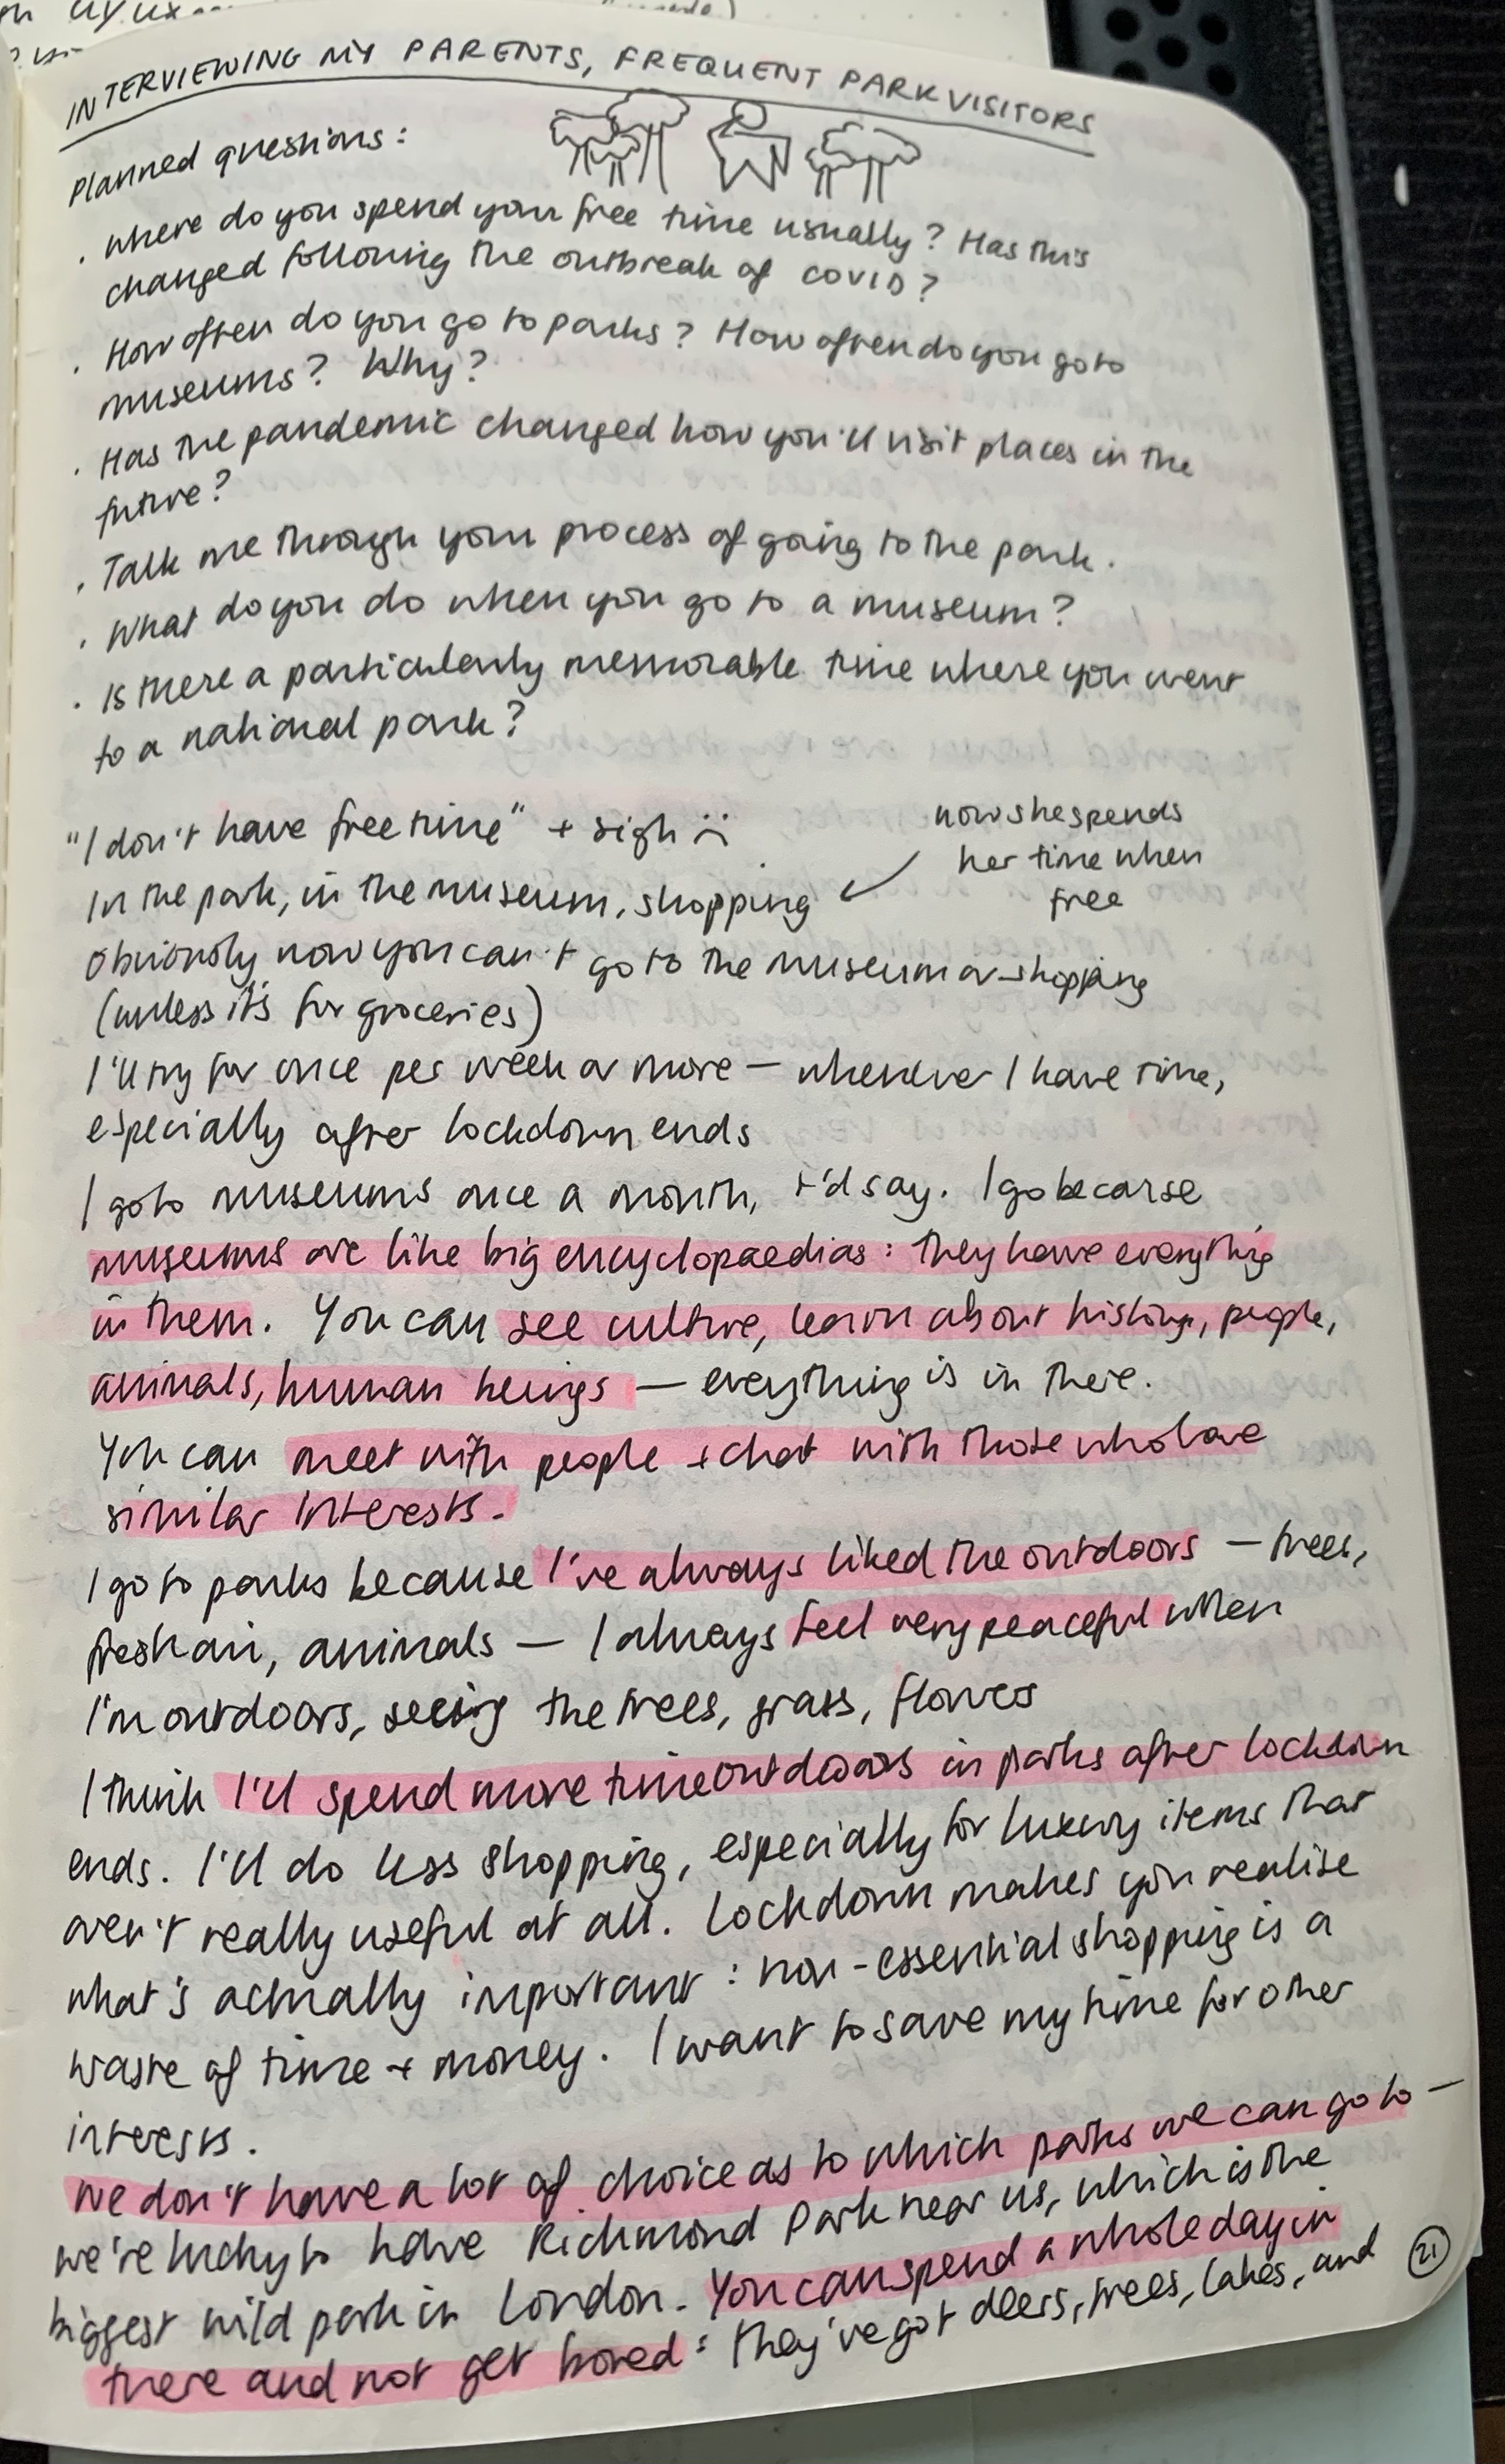 UI/UX
INTERVIEWING MY PARENTS, FREQUENT PARK VISITORS
Planned questions:
. Where do you spend your free time usually? Has this
changed following the outbreak of COVID?
. How often do you go to parks? How often do you go to
museums? Why?
. Has the pandemic changed how you'll visit places in the
future?
. Talk me through your process of going to the park.
. What do you do when you go to a museum?
. Is there a particularly memorable time where you went
to a national park?
"I don't have free time" + sigh :(
now she spends
her time when
free
In the park, in the museum, shopping
Obviously now you can't go to the museum or shopping
(unless it's for groceries)
I'll try for once per week or more — whenever I have time,
especially after lockdown ends
I go to museums once a month, I'd say. I go because
museums are like big encyclopaedias: they have everything
in them. You can see culture, learn about history, people,
animals, human beings — everything is in there.
You can meet with people + chat with those who have
similar interests.
I go to parks because I've always liked the outdoors — trees,
fresh air, animals — I always feel very peaceful when
I'm outdoors, seeing the trees, grass, flowers
I think I'll spend more time outdoors in parks after lockdown
ends. I'll do less shopping, especially for luxury items that
aren't really useful at all. Lockdown makes you realise
what's actually important: non-essential shopping is a
waste of time + money. I want to save my time for other
interests.
We don't have a lot of choice as to which parks we can go to —
we're lucky to have Richmond Park near us, which is the
biggest wild park in London. You can spend a whole day in
there and not get bored: they've got deers, trees, lakes, and
21